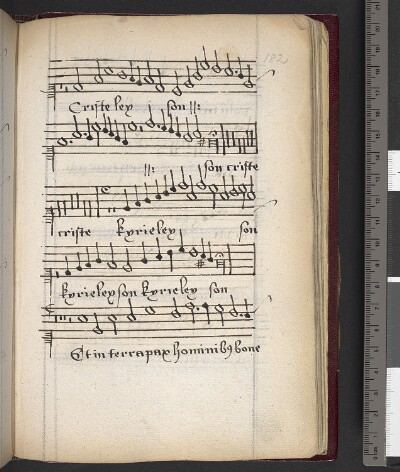 182
Criste ley son :||:
:||: son criste
criste kyrieley son
kyrieleyson kyrieley son
Et in terra pax hominibꝯ bone